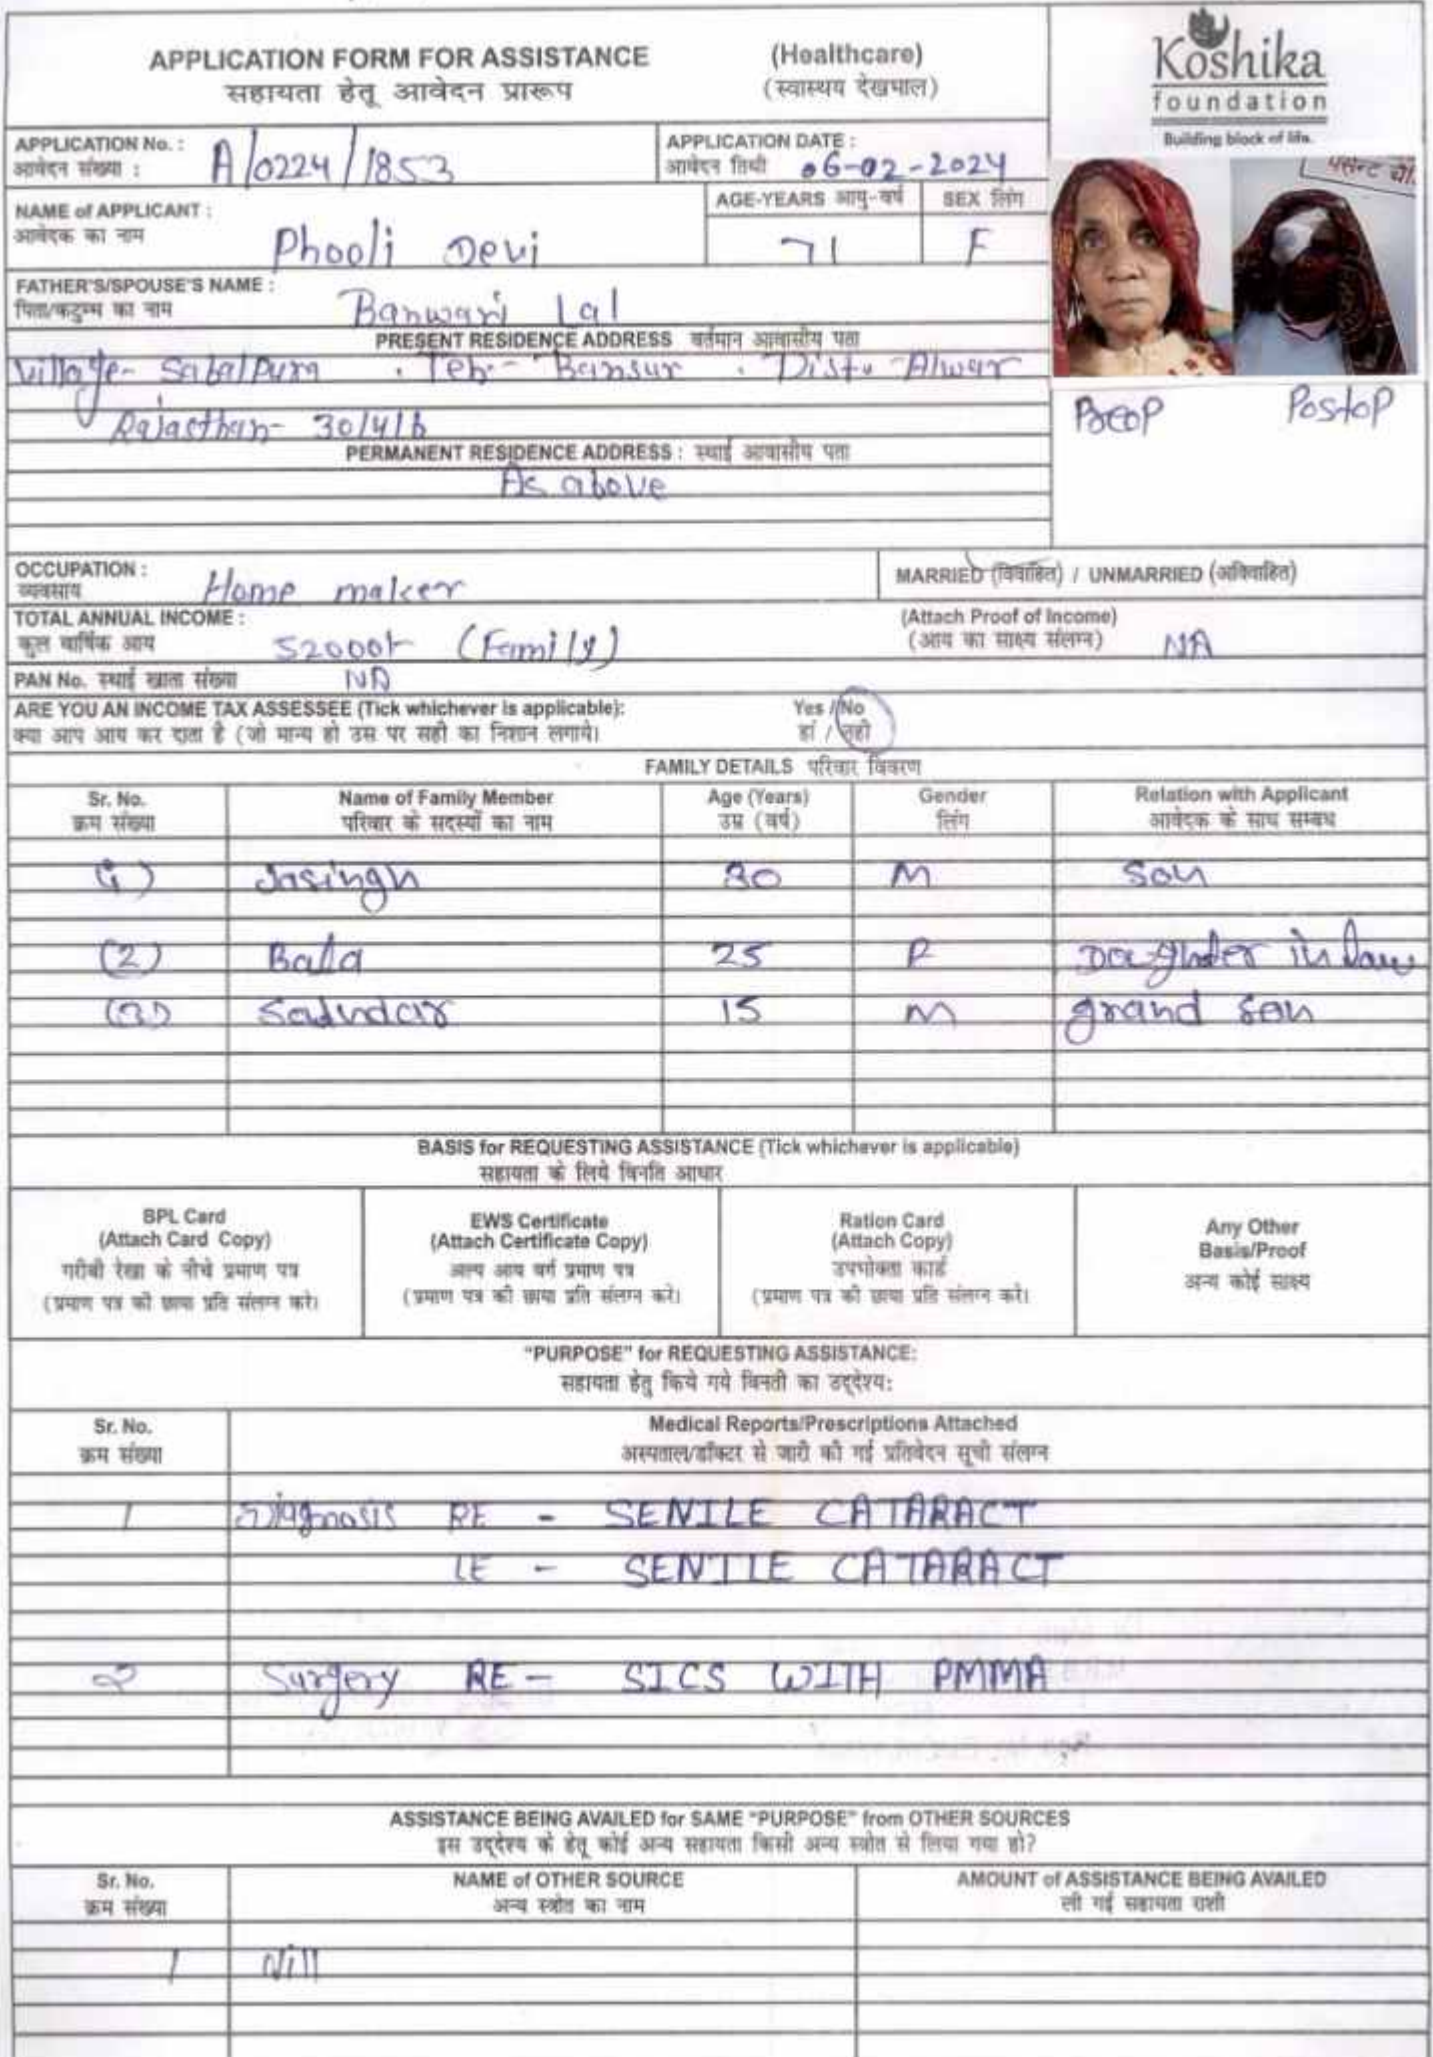 APPLICATION FORM FOR ASSISTANCE (Healthcare)
सहायता हेतू आवेदन प्रारूप (स्वास्थय देखभाल)
Koshika
foundation
Building block of life.
APPLICATION No. :
आवेदन संख्या : A/0224/1853
APPLICATION DATE :
आवेदन तिथी 06-02-2024
NAME of APPLICANT :
आवेदक का नाम Phooli Devi
AGE-YEARS आयु-वर्ष 71
SEX लिंग F
FATHER'S/SPOUSE'S NAME :
पिता/कटुम्ब का नाम Banwari Lal
PRESENT RESIDENCE ADDRESS वर्तमान आवासीय पता
Village- Sabalpura . Teh- Bansur . Distt- Alwar
Rajasthan- 301416
Preop Postop
PERMANENT RESIDENCE ADDRESS : स्थाई आवासीय पता
As above
OCCUPATION :
व्यवसाय Home maker
MARRIED (विवाहित) / UNMARRIED (अविवाहित)
TOTAL ANNUAL INCOME :
कुल वार्षिक आय 52000/- (Family)
(Attach Proof of Income)
(आय का साक्ष्य संलग्न) NA
PAN No. स्थाई खाता संख्या NA
ARE YOU AN INCOME TAX ASSESSEE (Tick whichever is applicable): Yes / No
क्या आप आय कर दाता है (जो मान्य हो उस पर सही का निशान लगाये। हां / नही
FAMILY DETAILS परिवार विवरण
Sr. No. Name of Family Member Age (Years) Gender Relation with Applicant
क्रम संख्या परिवार के सदस्यों का नाम उम्र (वर्ष) लिंग आवेदक के साथ सम्बध
(1) Jasingh 30 M Son
(2) Balla 25 F Daughter in law
(3) 15 M grand son
BASIS for REQUESTING ASSISTANCE (Tick whichever is applicable)
सहायता के लिये विनति आधार
BPL Card
(Attach Card Copy)
गरीबी रेखा के नीचे प्रमाण पत्र
(प्रमाण पत्र की छाया प्रति संलग्न करे।
EWS Certificate
(Attach Certificate Copy)
अल्प आय वर्ग प्रमाण पत्र
(प्रमाण पत्र की छाया प्रति संलग्न करे।
Ration Card
(Attach Copy)
उपभोक्ता कार्ड
(प्रमाण पत्र की छाया प्रति संलग्न करे।
Any Other
Basis/Proof
अन्य कोई साक्ष्य
"PURPOSE" for REQUESTING ASSISTANCE:
सहायता हेतु किये गये विनती का उद्देश्य:
Sr. No. Medical Reports/Prescriptions Attached
क्रम संख्या अस्पताल/डॉक्टर से जारी की गई प्रतिवेदन सूची संलग्न
1 Diagnosis RE - SENILE CATARACT
LE - SENILE CATARACT
2 Surgery RE - SICS WITH PMMA
ASSISTANCE BEING AVAILED for SAME "PURPOSE" from OTHER SOURCES
इस उद्देश्य के हेतू कोई अन्य सहायता किसी अन्य स्त्रोत से लिया गया हो?
Sr. No. NAME of OTHER SOURCE AMOUNT of ASSISTANCE BEING AVAILED
क्रम संख्या अन्य स्त्रोत का नाम ली गई सहायता राशी
1 Nill